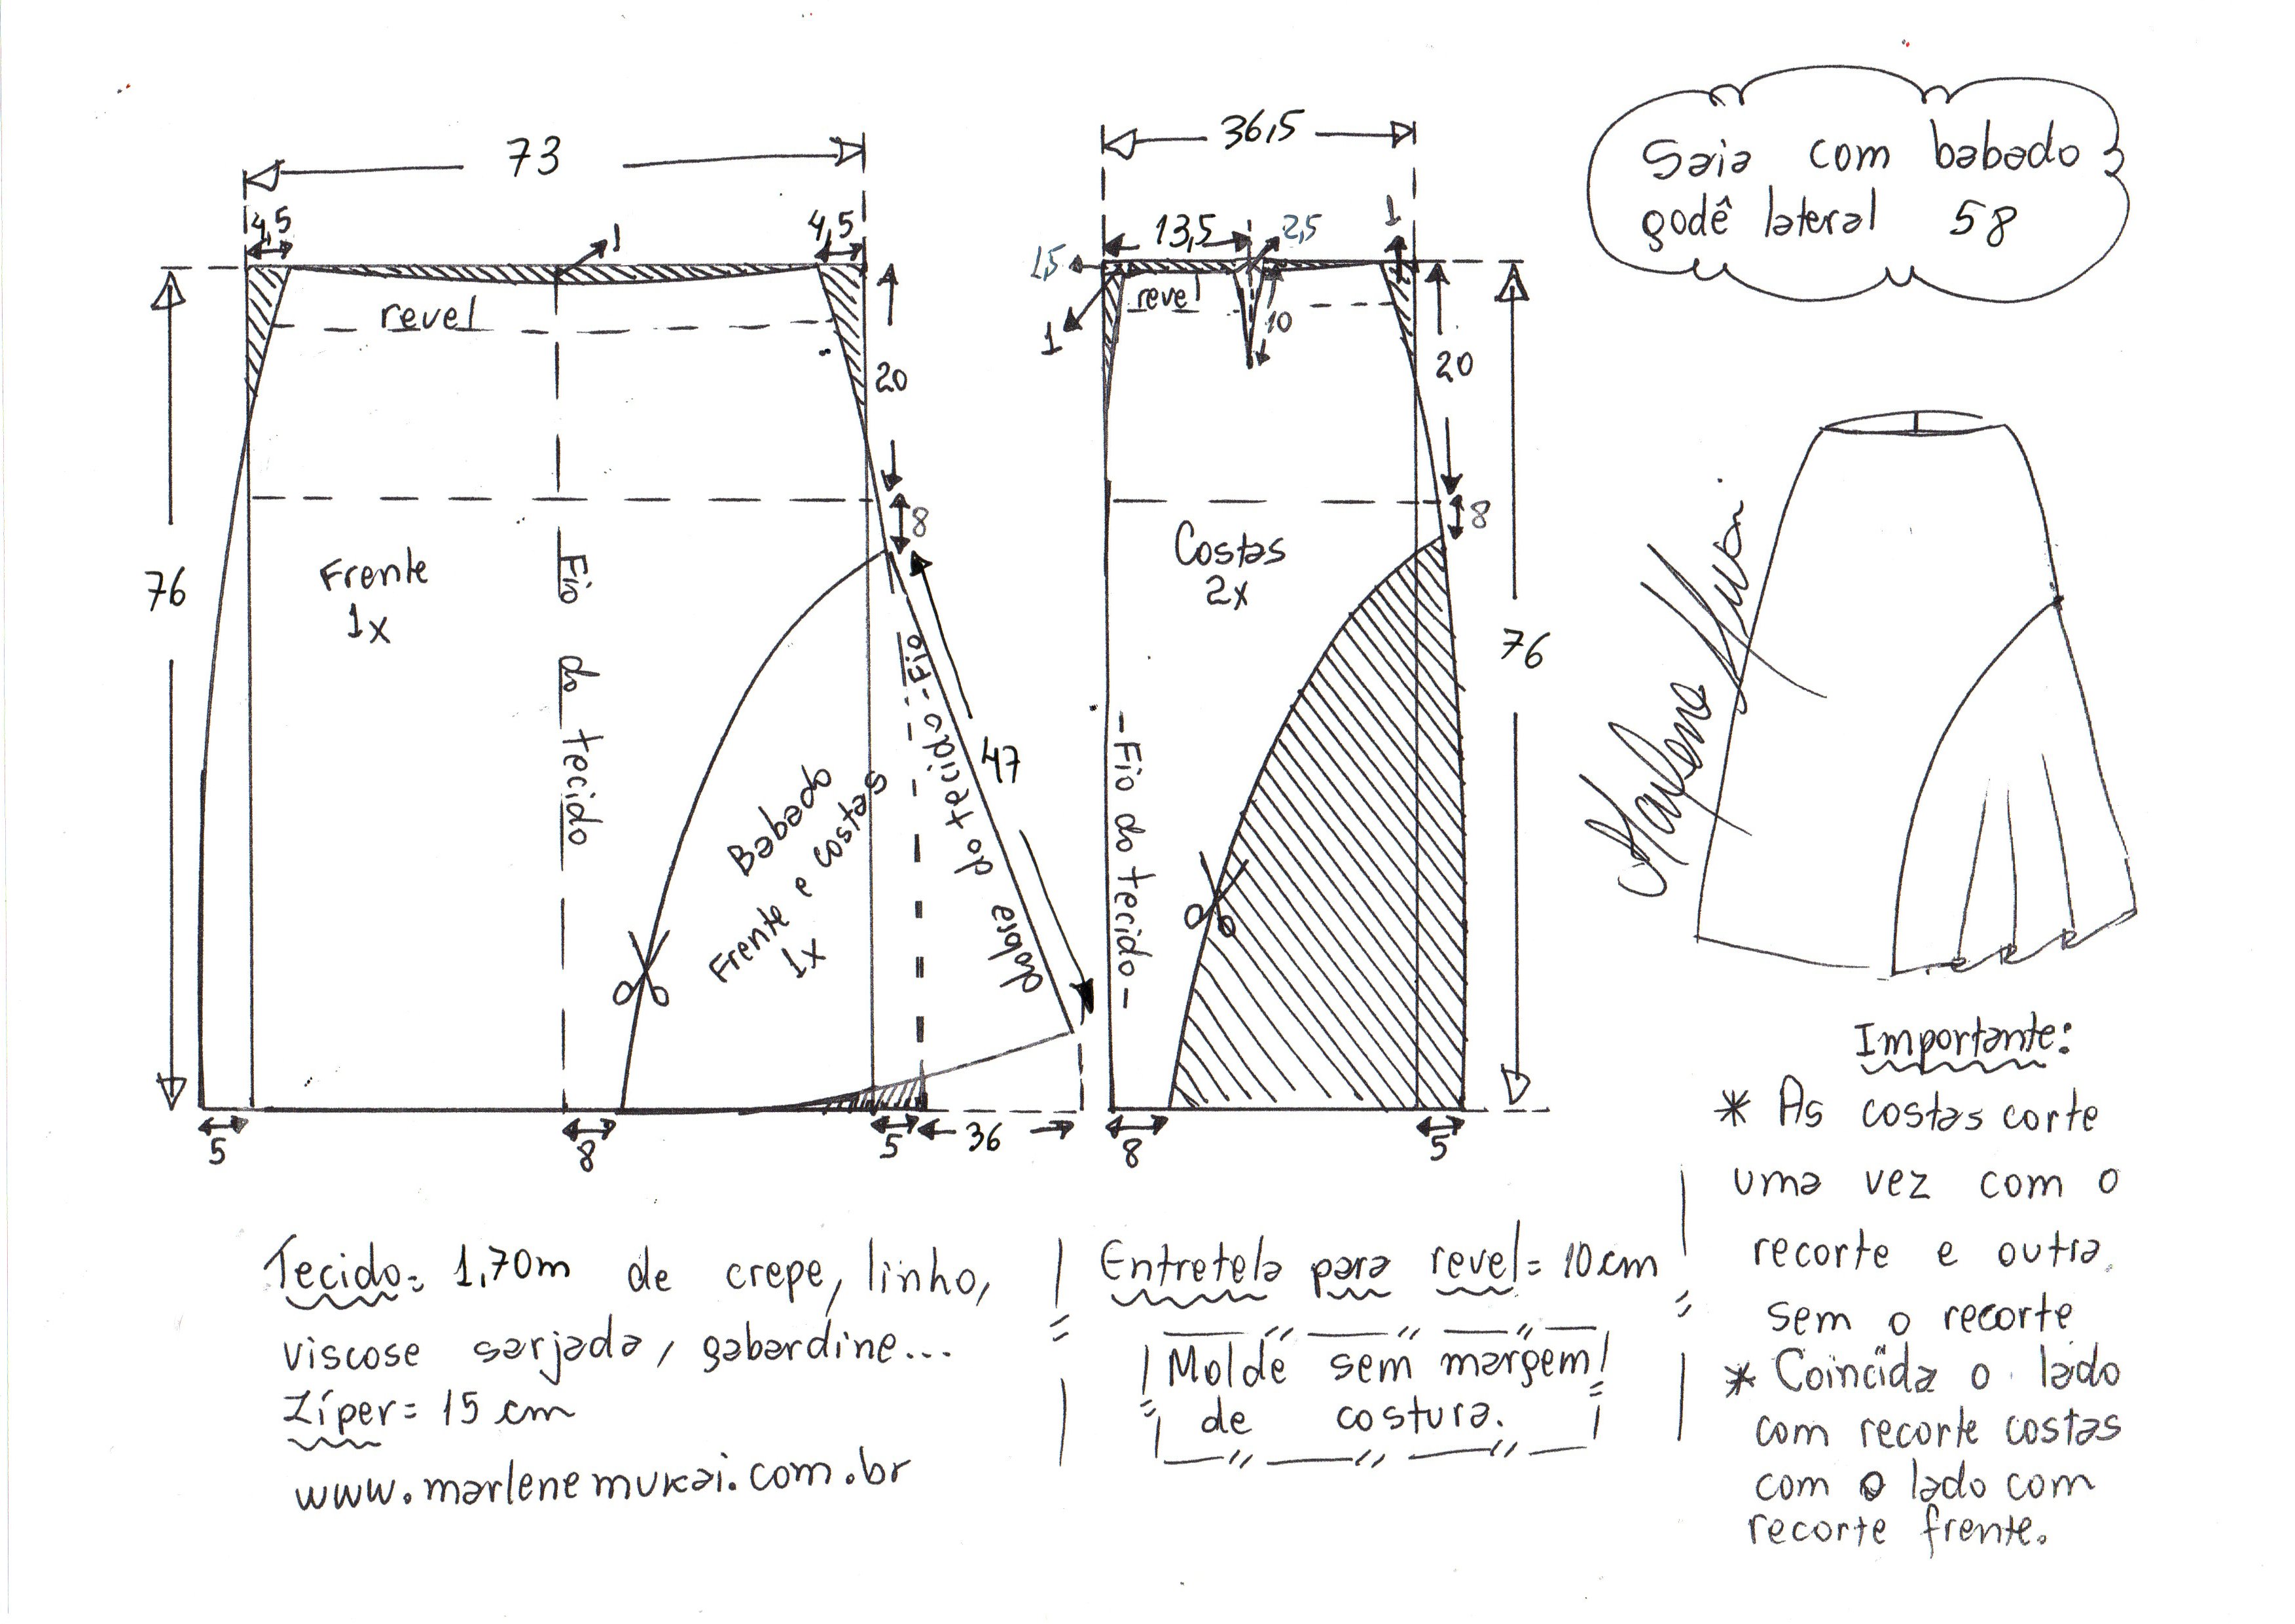 Saia com babado
godê lateral 58
73
4,5
4,5
1
revel
20
8
76
Frente
1x
Fio do tecido
Babado
Frente e costas
1x
Fio do tecido
dobre
47
5
8
5
36
36,5
13,5
2,5
1
1,5
revel
1
10
20
8
Costas
2x
76
Fio do tecido
8
5
Marlene Mukai
Tecido= 1,70m de crepe, linho,
viscose sarjada, gabardine...
Zíper= 15 cm
www.marlenemukai.com.br
Entretela para revel= 10 cm
Molde sem margem
de costura.
Importante:
* As costas corte
uma vez com o
recorte e outra
sem o recorte
* Coincida o lado
com recorte costas
com o lado com
recorte frente.